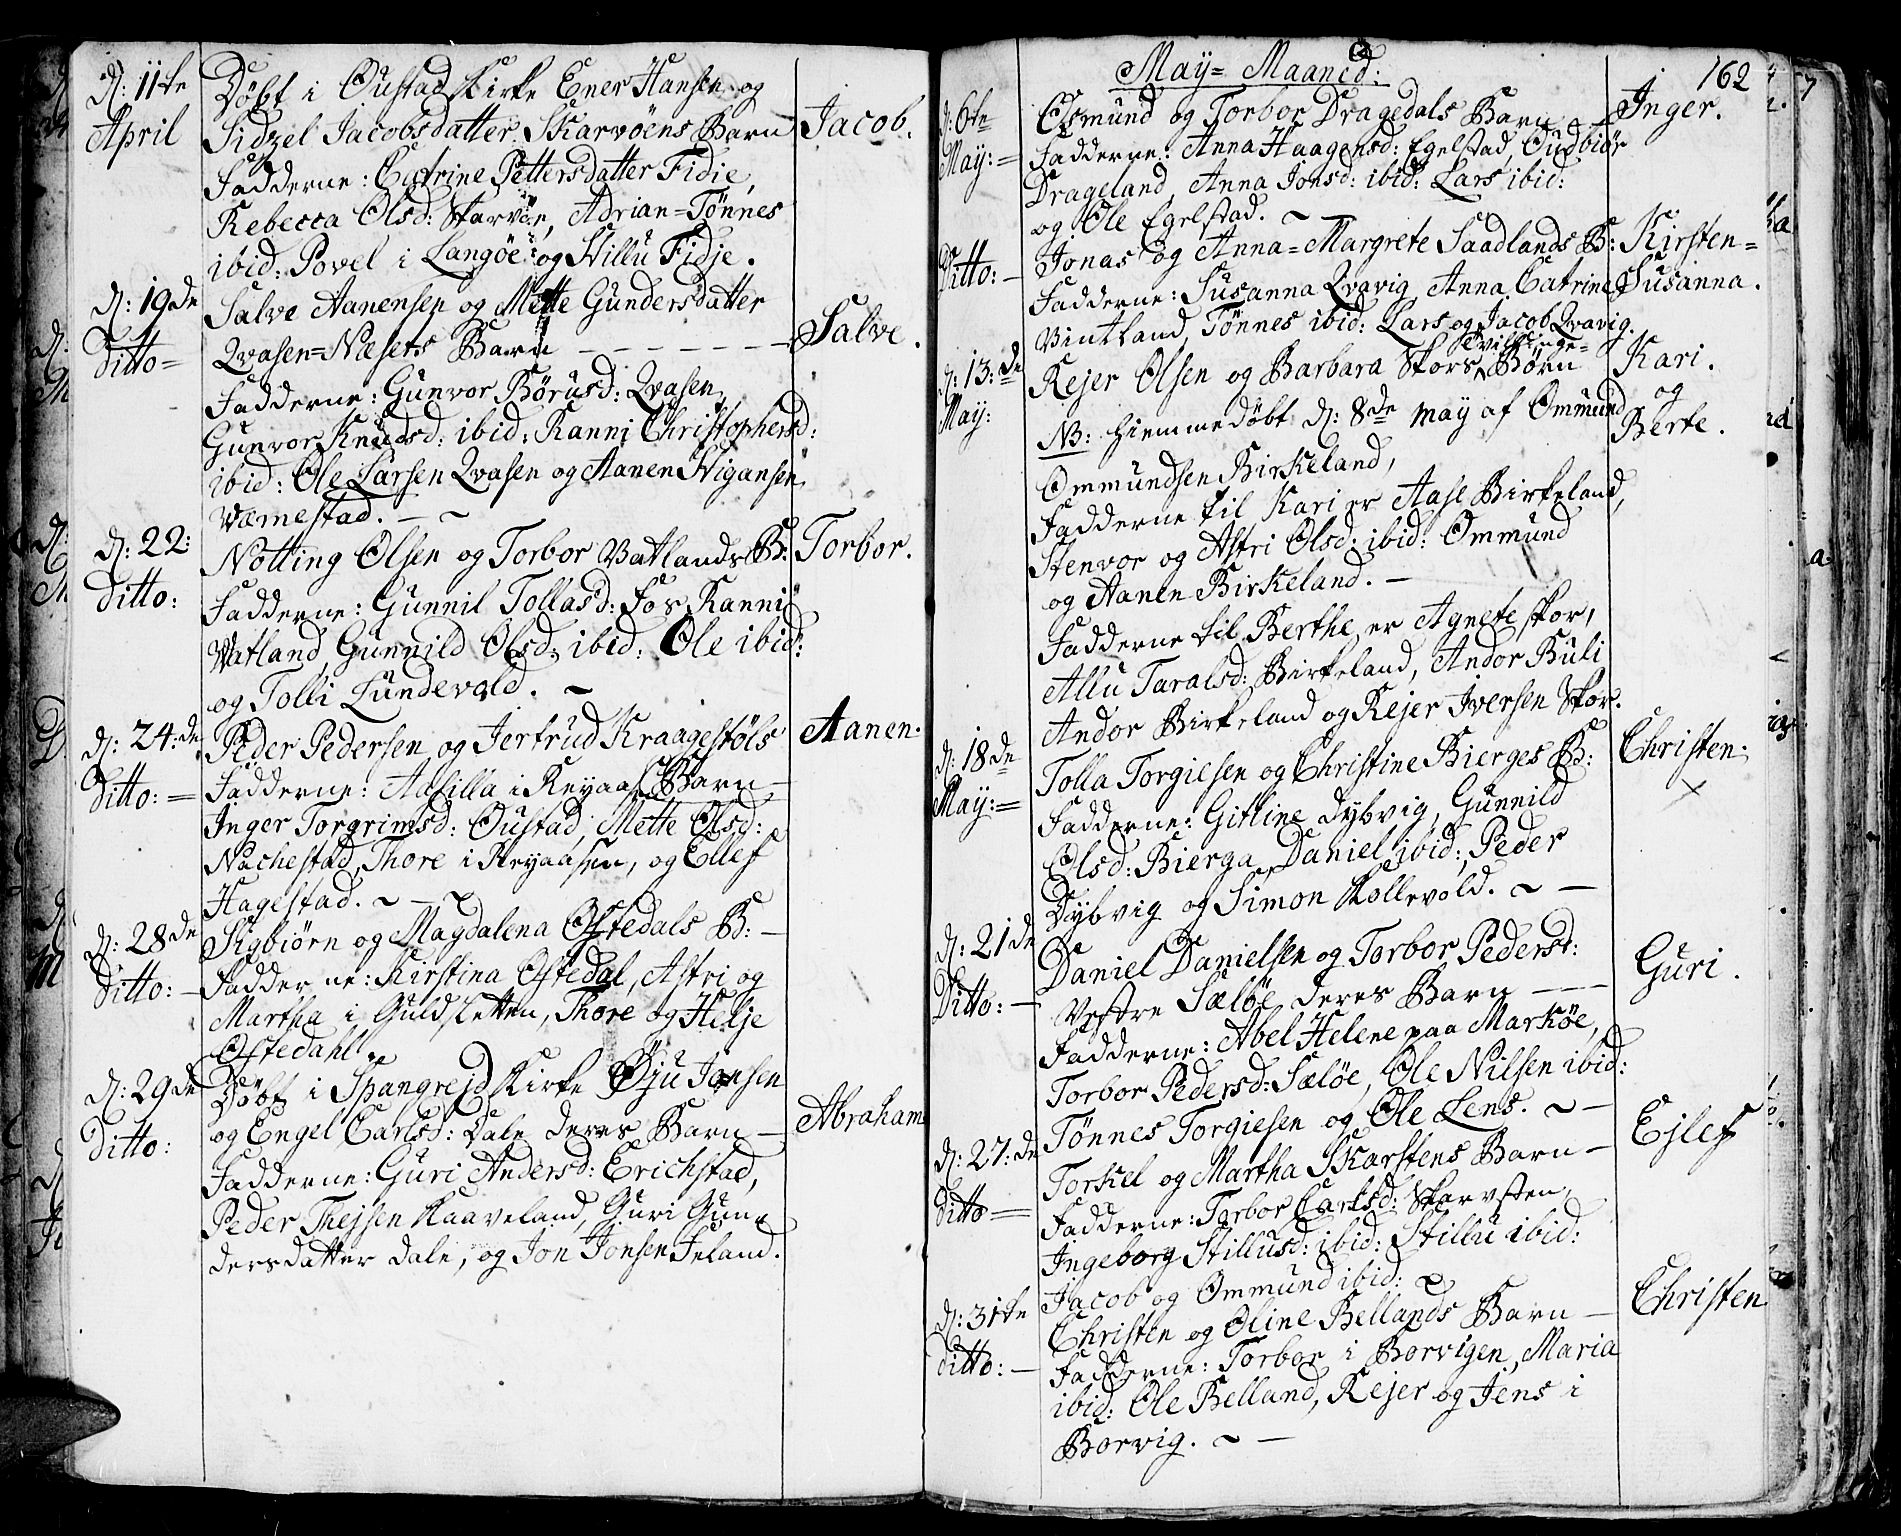 D: 11te April
Døbt i Oustad Kirke Ener Hansen og
Sidzel Jacobsdatter Skarvöens Barn Jacob.
Fadderne: Catrine Pettersdatter Fidie,
Rebecca Olsd: Skarvöe, Adrian=Tönnes
ibid: Povel i Langöe og Stillu Fidje.
D: 19de Ditto=
Salve Aanensen og Mette Gundersdatter
Qvasen=Næsets Barn — Salve.
Fadderne: Gunvor Börusd: Qvasen,
Gunvor Knudsd: ibid: Ranni Christophersd:
ibid: Ole Larsen Qvasen og Aanen Stigansen
Wæmestad. —
D: 22: Ditto:
Notting Olsen og Torbor Vatlands B: Torbor.
Fadderne: Gunnil Tollasd: Fos, Ranni
Vatland, Gunnild Olsd: ibid: Ole ibid:
og Tolli Lundevold.
D: 24:de Ditto:=
Peder Pedersen og Jertrud Kraagestöls Aanen.
Fadderne: Adsilla i Reyaas Barn
Inger Torgrimsd: Oustad, Mette Olsd:
Nachestad, Thore i Reyaasen, og Ellef
Hagestad. —
D: 28de Ditto:—
Sigbiörn og Magdalena Oftedals B: —
Fadderne: Kirstina Oftedal, Astri og
Martha i Guldsletten, Thore og Helje
Oftedahl
D: 29de Ditto:
Døbt i Spangrejd Kirke Öju Jonsen
og Engel Carlsd: Dale deres Barn — Abraham
Fadderne: Guri Andersd: Erichstad,
Peder Thejsen Kaaveland, Guri Gun=
dersdatter Dale, og Jon Jonsen Jeland.
162
May= Maaned:
D: 6te May:=
Osmund og Torbor Dragedals Barn — Inger.
Fadderne: Anna Haagensd: Egelstad, Oudbiör
Drageland, Anna Jonsd: ibid: Lars ibid:
og Ole Egelstad. —
Ditto:—
Jonas og Anna=Margrete Saadlands B: Kirsten=
Fadderne: Susanna Qvavig, Anna Catrine Susanna.
Vintland, Tönnes ibid: Lars og Jacob Qvavig.
D: 13:de May:
Rejer Olsen og Barbara Skors Tvillinge= Börn Kari.
og
NB: Hiemmedöbt d: 8de May af Ommund Berte.
Ommundsen Birkeland,
Fadderne til Kari er Aase Birkeland,
Stenvor og Astri Olsd: ibid: Ommund
og Aanen Birkeland. —
Fadderne til Berthe er Agnete Skor,
Allu Taralsd: Birkeland, Andor Buli
Andor Birkeland og Rejer Iversen Skor.
D: 18de May:=
Tolla Torgiesen og Christine Bierges B: Christen.
Fadderne: Gitline Dybvig, Gunnild
Olsd: Bierga, Daniel ibid:, Peder
Dybvig og Simon Kollevold. —
D: 21de Ditto:—
Daniel Danielsen og Torbor Pedersd:
Vestre Sælöe deres Barn — Guri.
Fadderne: Abel Helene paa Marköe,
Torbor Pedersd: Sælöe, Ole Nilsen ibid:
Tönnes Torgiesen og Ole Lens. —
D: 27:de Ditto=
Torkel og Martha Skarstens Barn — Ejlef
Fadderne: Torbor Carlsd: Skarvsten,
Ingeborg Stillusd: ibid: Stillu ibid:
Jacob og Ommund ibid:
D: 31te Ditto:—
Christen og Oline Bellands Barn — Christen
Fadderne: Torbor i Borvigen, Maria
ibid: Ole Belland, Rejer og Jens i
Borvig. —